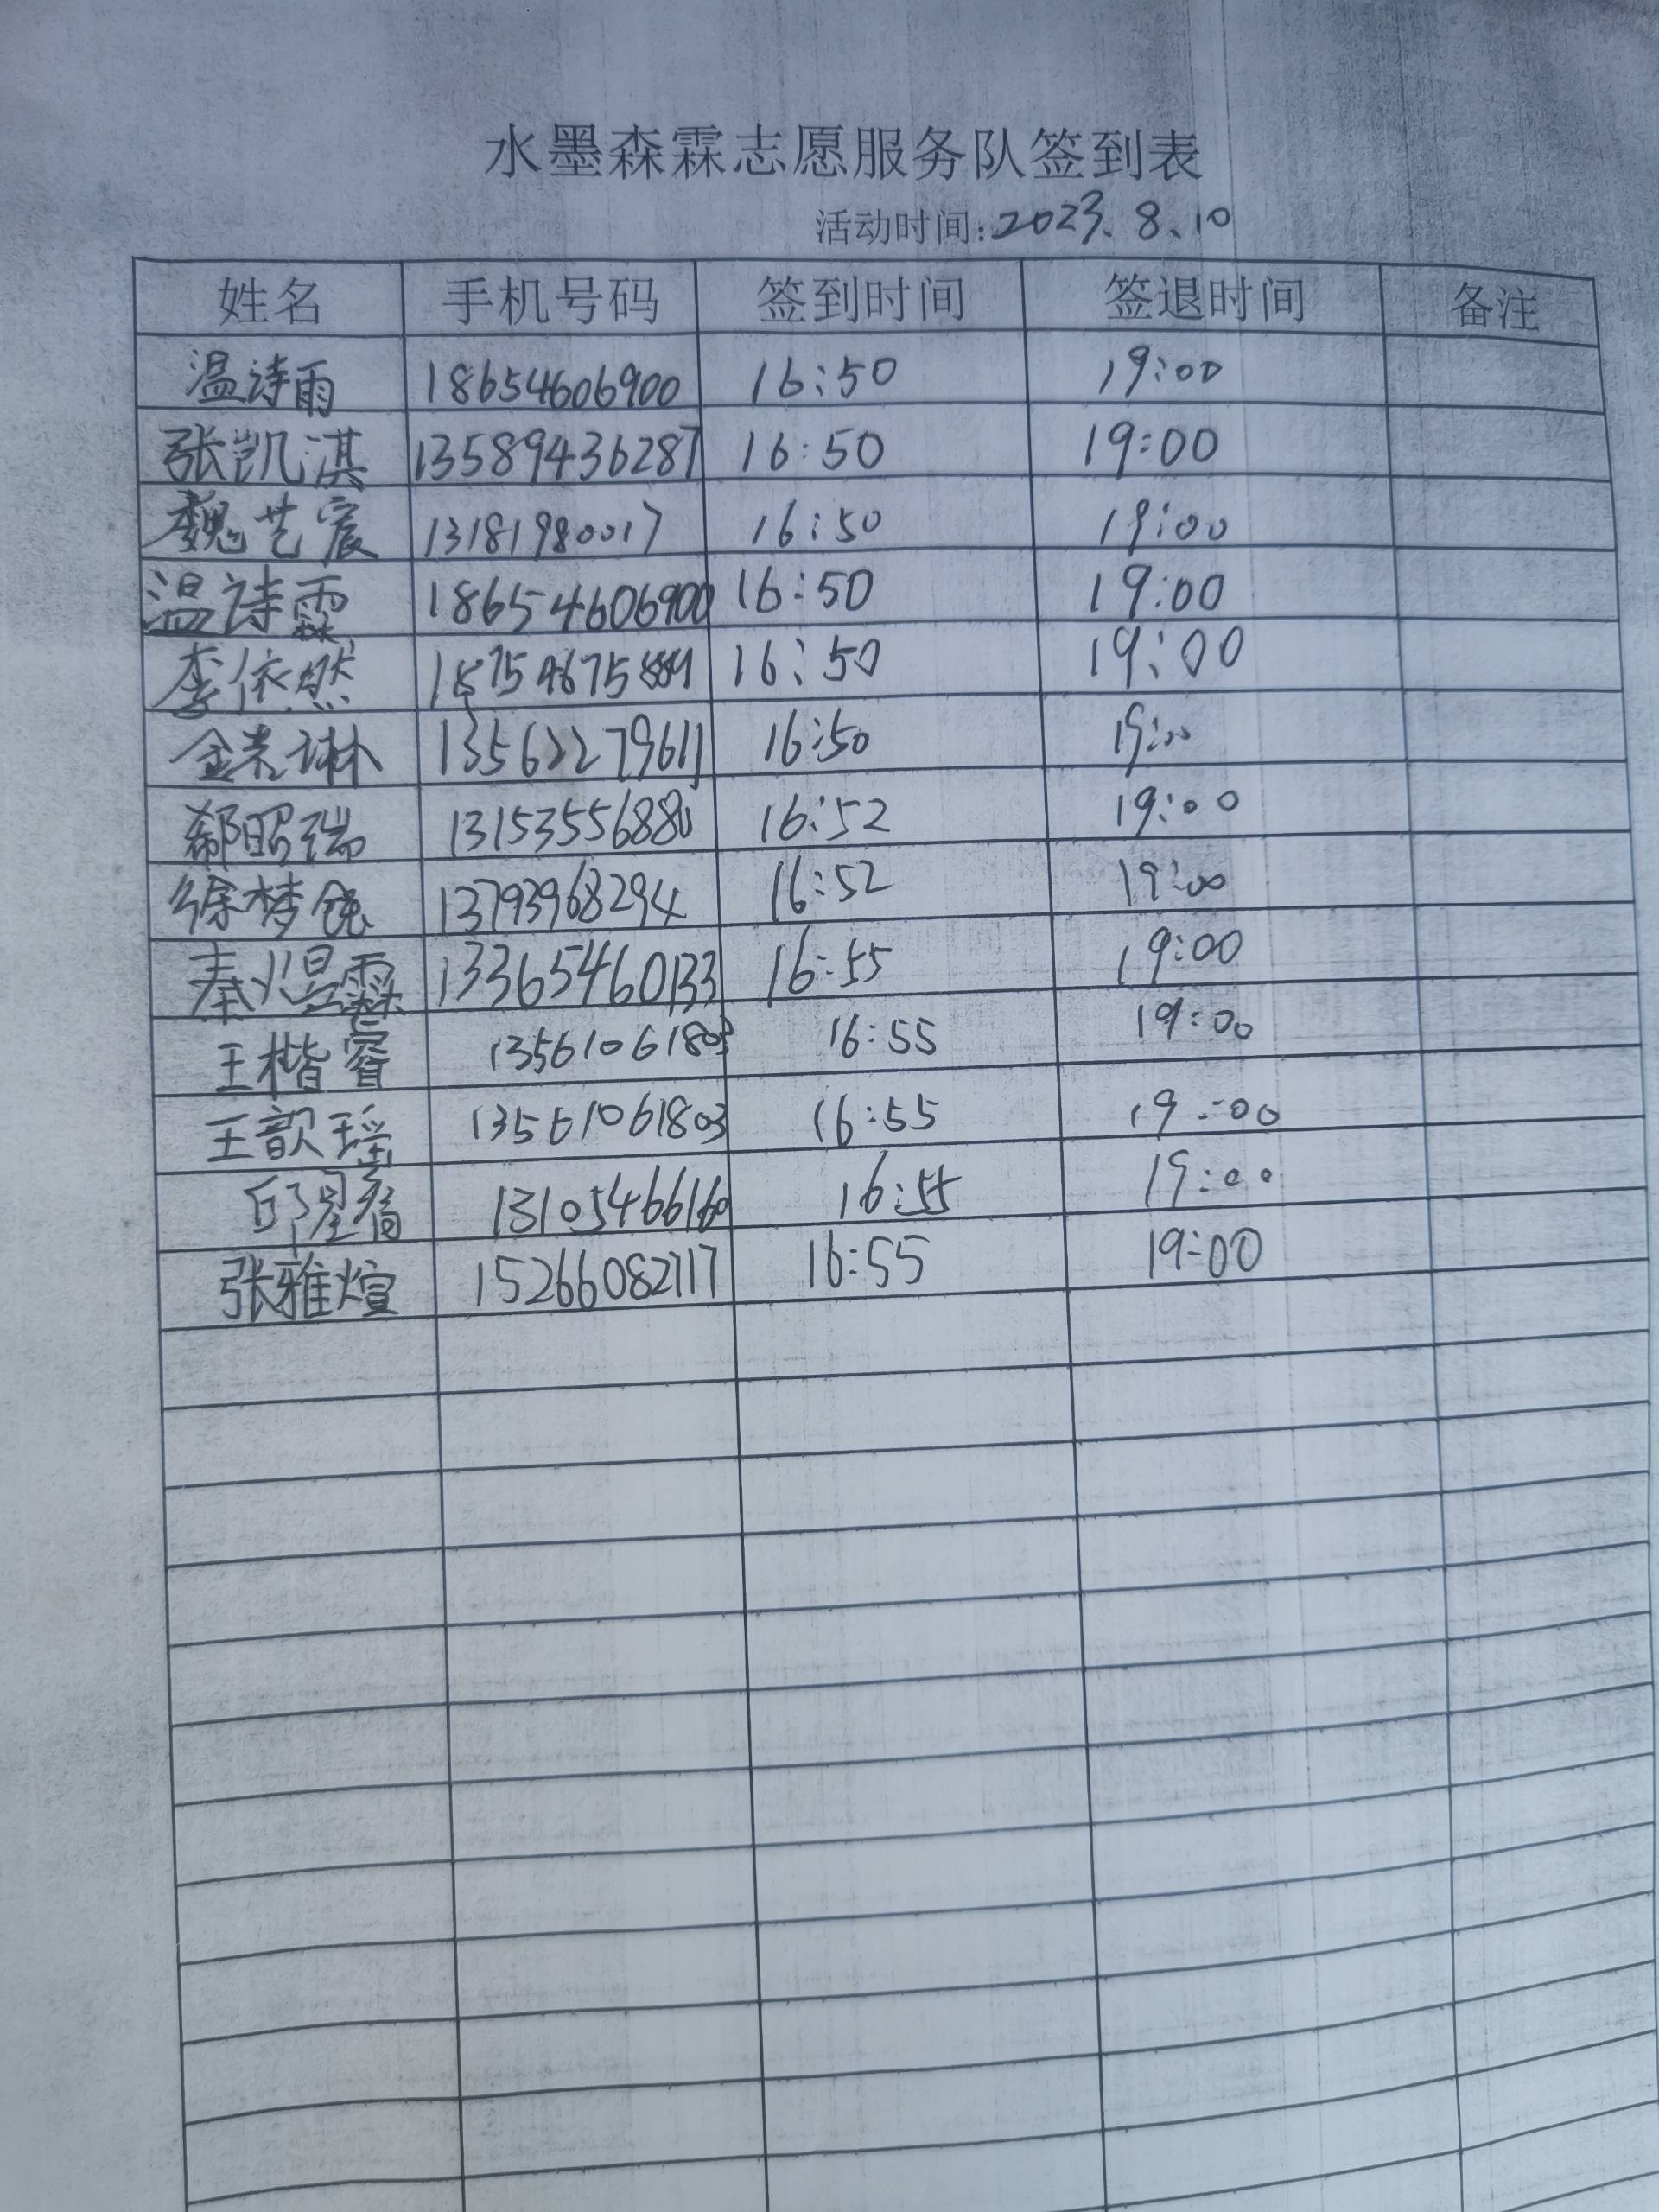 水墨森霖志愿服务队签到表
活动时间:2023.8.10
姓名 手机号码 签到时间 签退时间 备注
温诗雨 18654606900 16:50 19:00
张凯淇 13589436287 16:50 19:00
魏艺宸 13181980017 16:50 19:00
温诗霖 18654606900 16:50 19:00
李依然 16:50 19:00
金 琳 13562279611 16:50 19:00
郗昭瑞 13153556880 16:52 19:00
徐梦 13793968294 16:52 19:00
秦煜霖 13365460133 16:55 19:00
王楷睿 13561061803 16:55 19:00
王歆瑶 13561061803 16:55 19:00
邱星 13105466160 16:55 19:00
张雅煊 15266082717 16:55 19:00